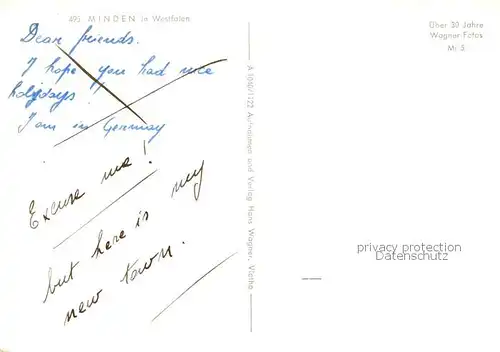 495 MINDEN in Westfalen
Dear friends.
I hope you had nice
holydays !!
I am in Germay
Excuse me !
but here is my
new town.
Über 30 Jahre
Wagner-Fotos
Mi 5
Aufnahmen und Verlag Hans Wagner, Vlotho
privacy protection
Datenschutz